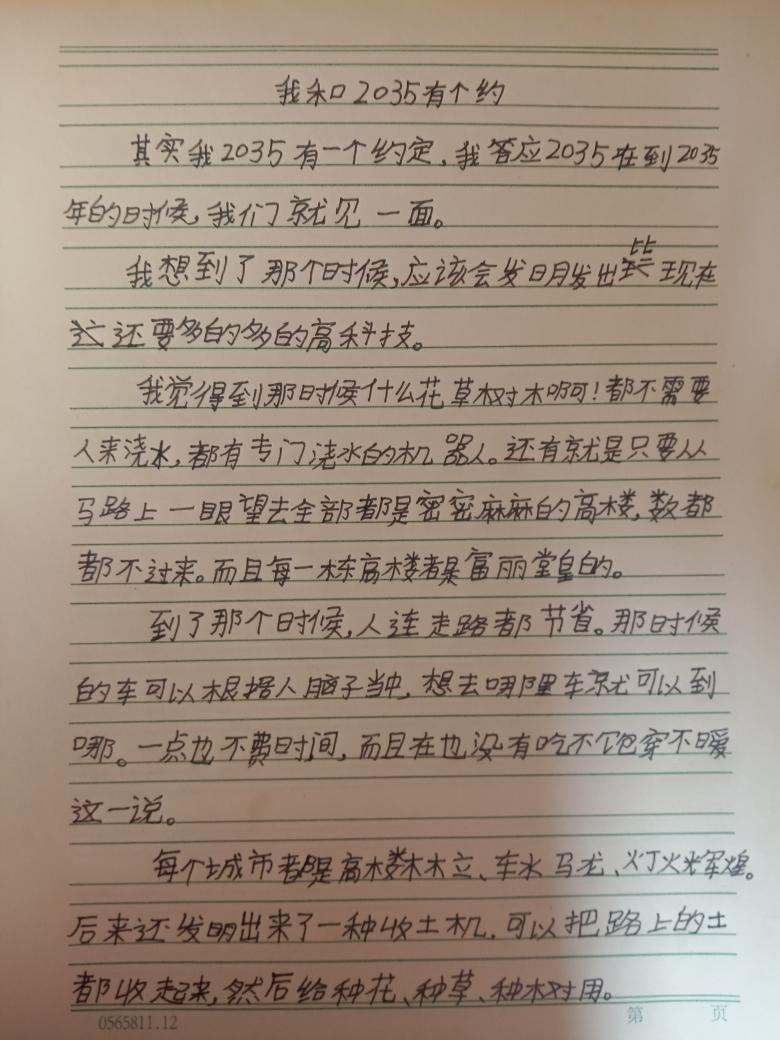 我和2035有个约
其实我2035有一个约定,我答应2035在到2035
年的时候,我们就见一面。
我想到了那个时候,应该会发日月发出比现在
这还要多的多的高科技。
我觉得到那时候什么花草树木啊!都不需要
人来浇水,都有专门浇水的机器人。还有就是只要从
马路上一眼望去全部都是密密麻麻的高楼,数都
都不过来。而且每一栋高楼都是富丽堂皇的。
到了那个时候,人连走路都节省。那时候
的车可以根据人脑子当中,想去哪里车就可以到
哪。一点也不费时间,而且在也没有吃不饱穿不暖
这一说。
每个城市都是高楼林立、车水马龙、灯火辉煌。
后来还发明出来了一种收土机,可以把路上的土
都收起来,然后给种花、种草、种树用。
0565811.12
第 页